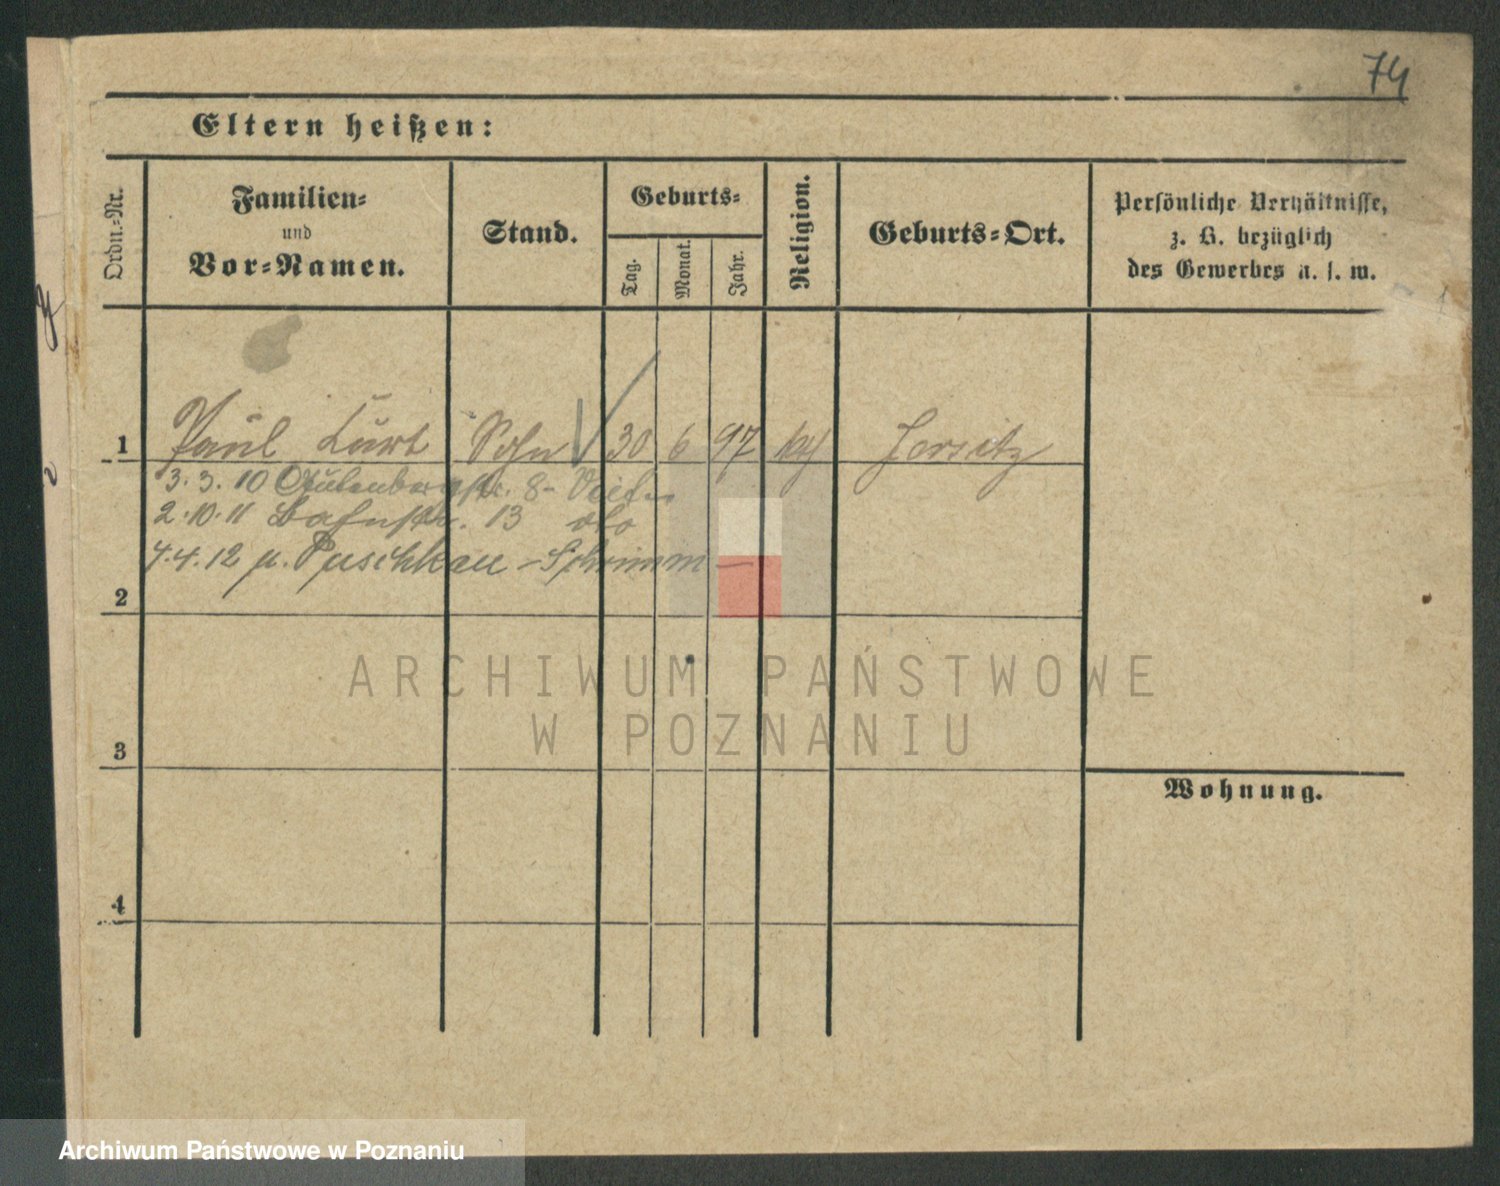 74
Eltern heißen:
Ordn.-Nr.
Familien-
und
Vor-Namen.
Stand.
Geburts-
Tag.
Monat.
Jahr.
Religion.
Geburts-Ort.
Persönliche Verhältnisse,
z. B. bezüglich
des Gewerbes u. s. w.
1 Paul Kurt Sohn 30 6 97 Jersitz
3. 3. 10 8-
2. 10. 11 Bahnstr. 13 dto
4. 4. 12 n. Puschkau - Schrimm -
2
3
4
Wohnung.
ARCHIWUM PAŃSTWOWE
W POZNANIU
Archiwum Państwowe w Poznaniu